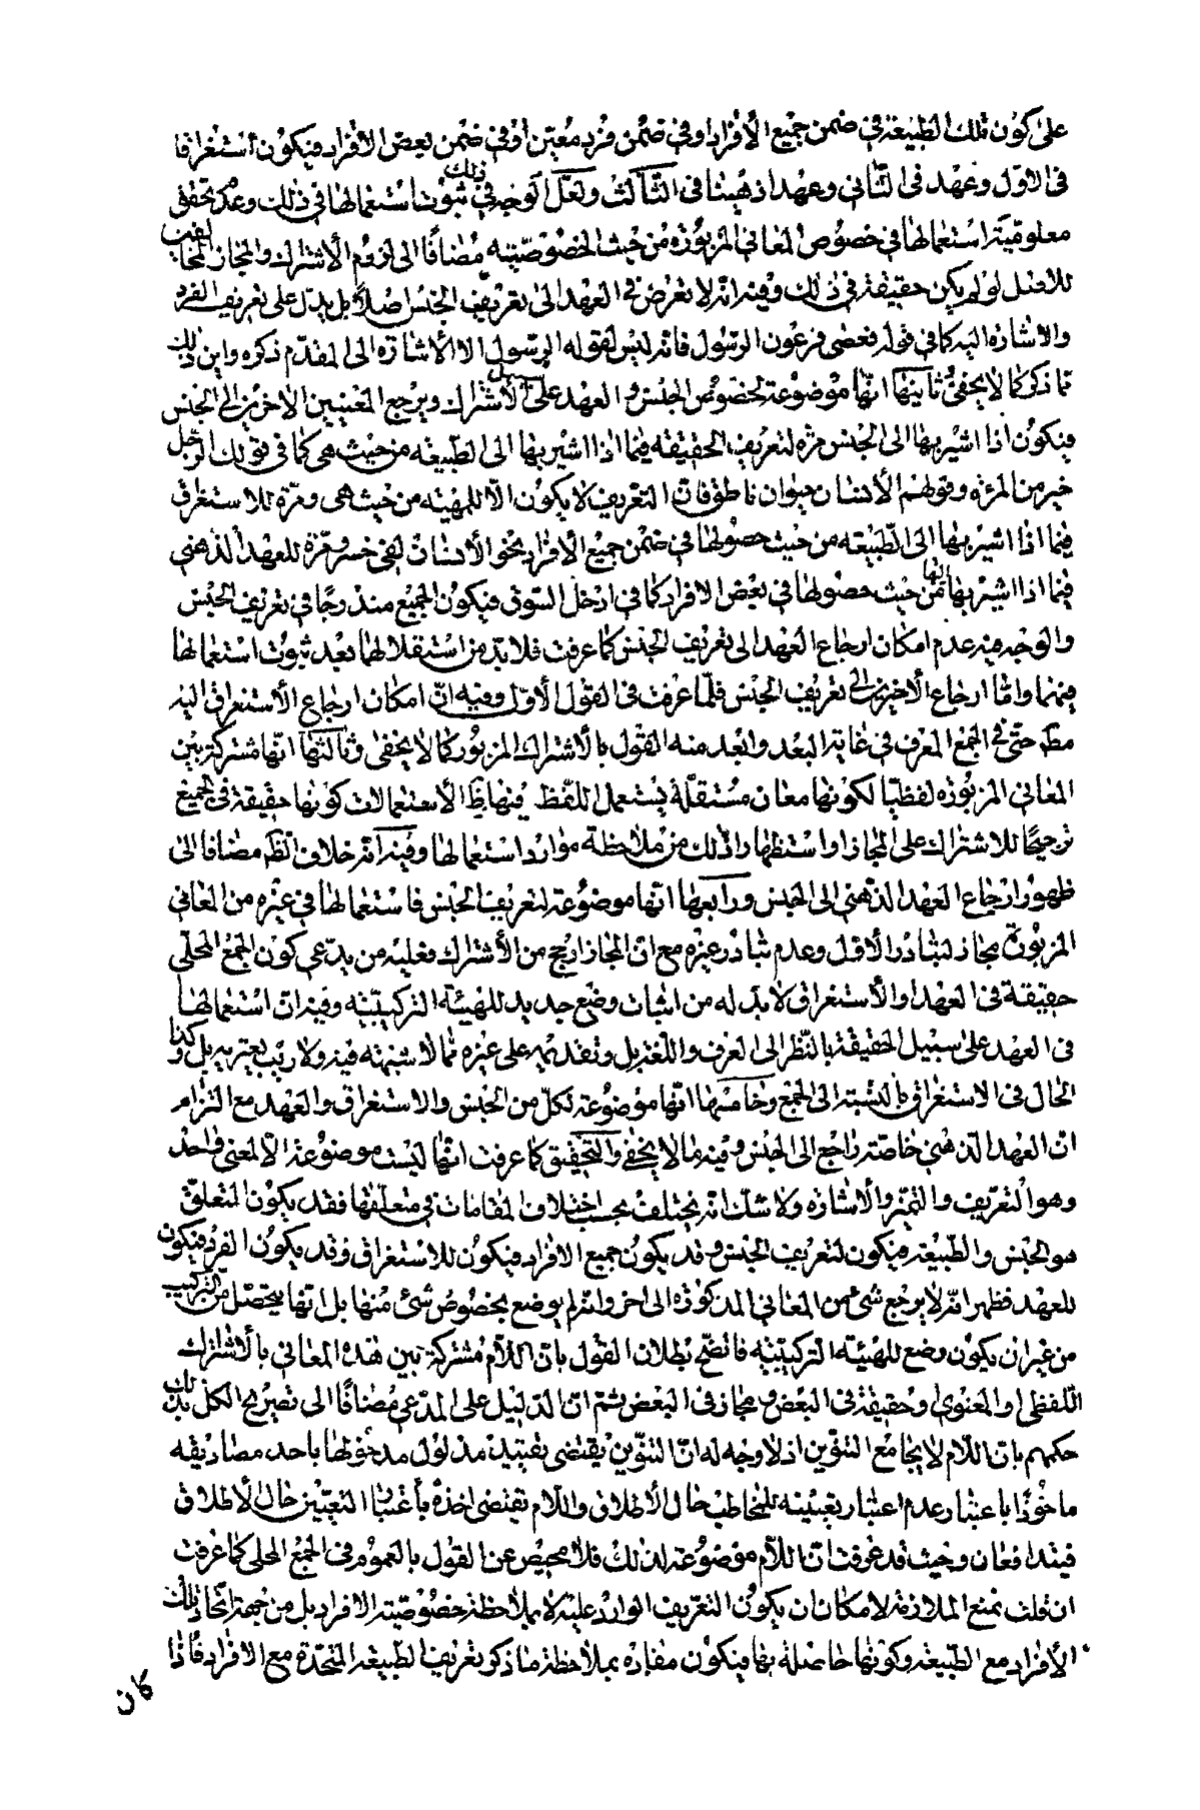 على كون تلك الطبيعة في ضمن جميع الأفراد او في ضمن فرد معيّن أو في ضمن بعض الافراد فيكون استغراقا
في الاوّل وعهد في الثاني وعهدا ذهنيا في الثالث ولعلّ الوجه في ذلك ثبوت استعمالها في ذلك وعدم تحقق
معلوميّة استعمالها في خصوص المعاني المزبورة من حيث الخصوصيّة مضافًا الى لزوم الأشتراك والمجاز المخالفين
للاصل لو لم يكن حقيقة في ذلك وفيه انّه لا تعرض في العهد الى تعريف الجنس اصلا بل يدلّ على تعريف الفرد
والاشارة اليه كما في قوله فعصى فرعون الرسول فانه ليس لقوله الرسول الا الأشارة الى المقدّم ذكره واين ذلك
مما ذكر كما لا يخفى وثانيها انّها موضوعة لخصوص الجنس و العهد على سبيل الأشتراك ويرجع المعنيين الأخرين الى الجنس
فيكون اذا اشير بها الى الجنس مرّة لتعريف الحقيقة فيما اذا اشير بها الى الطّبيعة من حيث هي كما في قولك الرّجل
خير من المرءة وقولهم الأنسان حيوان ناطق فانّ التعريف لا يكون الّا للمهيّة من حيث هى ومرّة للاستغراق
فيما اذا اشير بها الى الطّبيعة من حيث حصولها في ضمن جميع الأفراد نحو الأنسان لفي خسر ومرّة للعهد الذّهنى
فيما اذا اشير بها اليها من حيث حصولها في بعض الافراد كما في ادخل السّوق فيكون الجميع مندرجًا في تعريف الجنس
والوجه فيه عدم امكان ارجاع العهد الى تعريف الجنس كما عرفت فلابدّ من استقلالهما بعد ثبوت استعمالها
فيهما وامّا ارجاع الأخيرين الى تعريف الجنس فلما عرفت في القول الأوّل وفيه انّ امكان ارجاع الأستغراق اليه
مطم حتّى في الجمع المعرف في غاية البعد وابعد منه القول بالأشتراك المزبور كما لا يخفى وثالثها انّها مشتركة بين
المعاني المزبورة لفظيّا لكونها معان مستقلّة يستعمل اللفظ فيها و الأستعمالات كونها حقيقة في الجميع
ترجيحًا للاشتراك على المجاز او استظهارا ذلك من ملاحظة موارد استعمالها وفيه انّه خلاف الظّم مضافا الى
ظهور ارجاع العهد الذّهني الى الجنس ورابعها انّها موضوعة لتعريف الجنس فاستعمالها في غيره من المعاني
المزبورة مجاز لتبادر الأوّل وعدم تبادر غيره مع انّ المجاز ارجح من الأشتراك فعليه من يدّعى كون الجمع المحلّى
حقيقة في العهد او الأستغراق لا بدّ له من اثبات وضع جديد للهيئة التركيبيّة وفيه انّ استعمالها
في العهد على سبيل الحقيقة بالنّظر الى العرف واللّغة بل وتقديمه على غيره ممّا لا شبهة فيه ولا ريب يعتريه بل وكذا
الحال في الاستغراق بالنّسبة الى الجمع وخامسها انّها موضوعة لكلّ من الجنس والاستغراق والعهد مع التزام
انّ العهد الذّهني خاصّة راجع الى الجنس وفيه ما لا يخفى والتحقيق كما عرفت انّها ليست موضوعة الّا لمعنى واحد
وهو التعريف والتميّز والأشارة ولا شكّ انّه يختلف بحسب اختلاف المقامات في متعلّقها فقد يكون المتعلّق
هو الجنس والطّبيعة فيكون لتعريف الجنس وقد يكون جميع الافراد فيكون للاستغراق وقد يكون الفرد فيكون
للعهد فظهر انّه لا يرجع شئ من المعاني المذكورة الى اخر وانّه لم يوضع بخصوص شئ منها بل انّها يتحصّل من التّركيب
من غير ان يكون وضع للهيئة التركيبيّة فاتضح بطلان القول بانّ اللّام مشتركة بين هذه المعاني بالأشتراك
اللّفظى او المعنوى او حقيقة في البعض و مجاز في البعض ثمّ انّ الدّليل على المدّعى مضافًا الى تصريح الكل بذلك
حكمهم بانّ اللّام لا يجامع التنوين اذ لا وجه له الّا انّ التنوين يقتضى تقييد مدلول مدخولها باحد مصاديقه
ماخوذًا باعتبار عدم اعتبار تعيينه للمخاطب حال الأطلاق واللّام تقتضى اخذه بأعتبار التعيين حال الأطلاق
فيتدافعان وحيث قد عرفت انّ اللّام موضوعة لذلك فلا محيص عن القول بالعموم في الجمع المحلى كما عرفت
ان قلت نمنع الملازمة لامكان ان يكون التعريف الوارد عليه لا بملاحظة خصوصيّة الافراد بل من جهة اتّحاد تلك
الأفراد مع الطّبيعة وكونها حاصلة بها فيكون مفاده بملاحظة ما ذكر تعريف الطّبيعة المتّحدة مع الافراد فاذا
كان